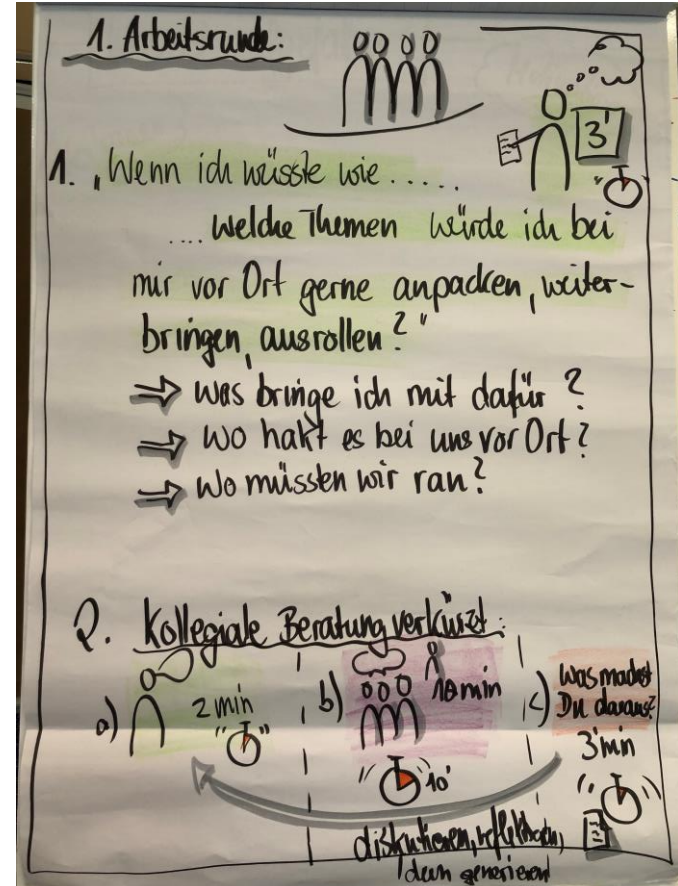 1. Arbeitsrunde:
3'
1. "Wenn ich wüsste wie.....
.... welche Themen würde ich bei
mir vor Ort gerne anpacken, weiter-
bringen, ausrollen?"
⇒ was bringe ich mit dafür?
⇒ wo hakt es bei uns vor Ort?
⇒ Wo müssten wir ran?
2. Kollegiale Beratung verkürzt:
a) 2 min
b) 10 min
10'
c) Was machst
Du daraus?
3 min
diskutieren, reflektieren,
Ideen generieren